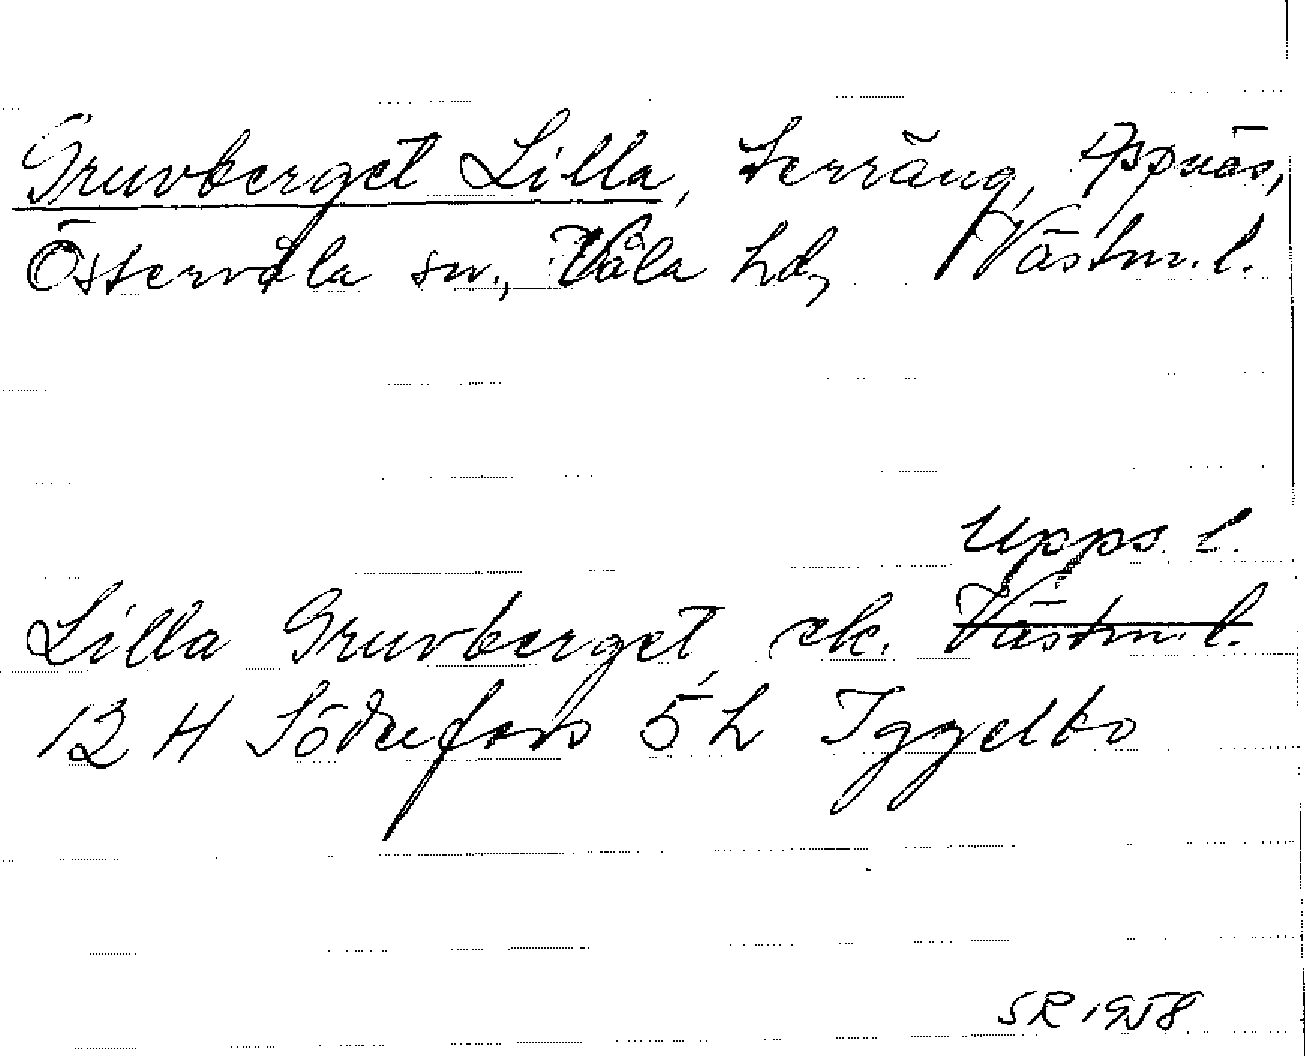 Gruvberget Lilla, terräng, Aspnäs,
Östervåla sn., Våla hd, Västm. l.
Upps. l.
Lilla Gruvberget, ek. Västm. l.
12 H Söderfors 5 h Iggelbo
SR 1958